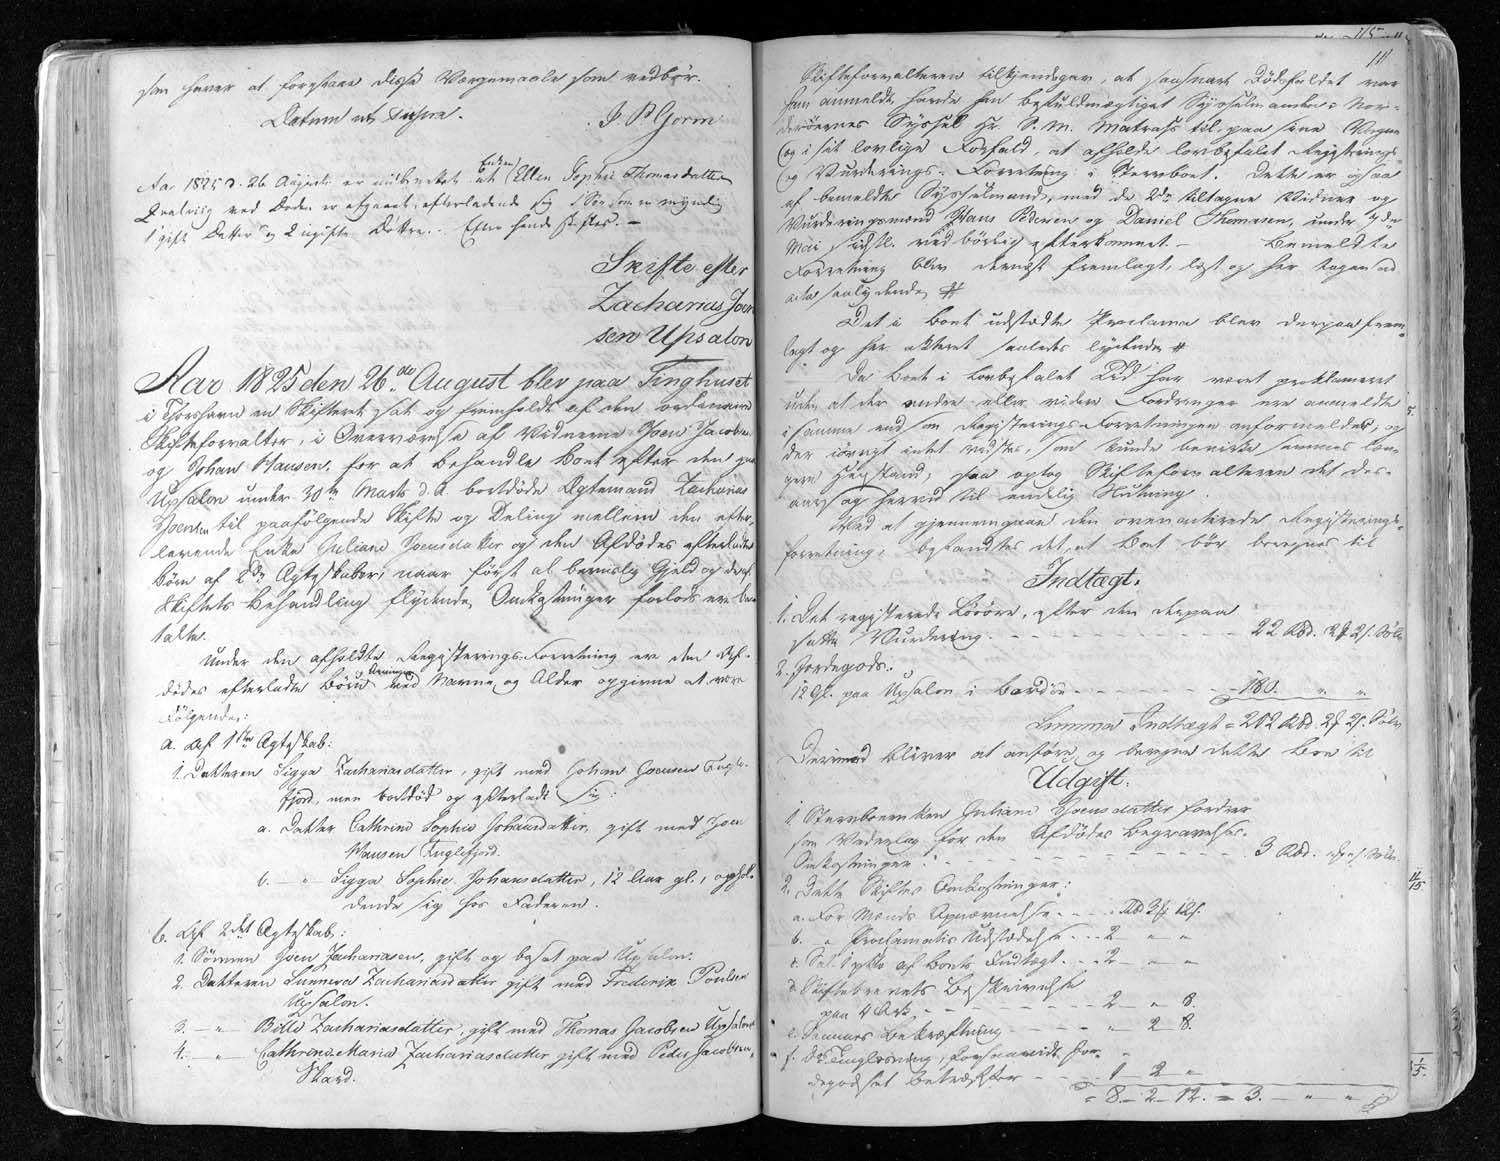 som haver at forestaae disse Værgemaale som vedbør.
Datum ut supra. J. P. Gjerm
Enken
Aar 1825 d. 26 August er anmeldt at Ellen Sophie Thomasdatter
Qvalviig ved Døden er afgaaet, efterladende sig 1 Søn som er myndig
1 gift Datter og 2 ugifte Døttre. Efter hende skiftes.
Skifte efter
Zacharias Joen
sen Upsalon
Aar 1825 den 26de August blev paa Tinghuset
i Thorshavn en Skifteret sat og fremholdt af den ordinaire
Skifteforvalter, i Overværelse af Vidnerne Joen Jacobsen
og Johan Hansen, for at behandle Boet efter den paa
Upsalon under 30te Marts d. A. bortdøde Ægtemand Zacharias
Joensen til paafølgende Skifte og Deling mellem den efter-
levende Enke Juliane Joensdatter og den Afdødes efterladte
Børn af 2de Ægteskaber, naar først al beviislig Gjeld og de af
Skiftets Behandling flydende Omkostninger forlods ere be-
talte.
Under den afholdte Registrerings-Forretning er den Af-
dødes efterladte Børn ved Navne og Alder opgivne at være
Følgende:
a. Af 1ste Ægteskab:
1. Datteren Sigga Zachariasdatter, gift med Johan Joensen Fugle-
fjord, men bortdød og efterladt sig:
a. Datter Cathrine Sophie Johansdatter, gift med Joen
Hansen Fuglefjord.
b. — " Sigga Sophie Johansdatter, 12 Aar gl., ophol-
dende sig hos Faderen.
b. Af 2det Ægteskab:
1. Sønnen Joen Zachariasen, gift og bosat paa Upsalon.
2. Datteren Sunneva Zachariasdatter gift med Frederik Poulsen
Upsalon.
3. — " — Bille Zachariasdatter, gift med Thomas Jacobsen Upsalon
4. — " — Cathrine Maria Zachariasdatter gift med Peder Jacobsen
Skard.
Skifteforvalteren tilkjendegav, at saasnart Dødsfaldet var
ham anmeldt havde han befuldmægtiget Sysselmanden i Nor-
derøernes Syssel Hr. S. M. Matras til paa sine Vegne
(og i sit lovlige Forfald, at afholde lovbefalet Registrerings-
og Vurderings-Forretning i Sterboet. Dette er ogsaa
af bemeldte Sysselmand, med de 2de tiltagne Vidner og
Vurderingsmænd Hans Pedersen og Daniel Thomasen, under
Mai sidstl. vedbørlig efterkommet. — Bemeldte
Forretning blev dernæst fremlagt, læst og her tages ad
acta saalydende #
Det i Boet udstædte Proclama blev derpaa frem-
lagt og her acteret saaledes lydende #
Da Boet i lovbefalet Tid har været proklameret
uden at der andre eller videre Fordringer ere anmeldte
i samme end som Registrerings-Forretningen anformelder, og
der iøvrigt intet vidstes, som kunde bevirke sammes læn-
gere Henstand, saa optog Skifteforvalteren det des-
aarsag herved til endelig Slutning.
Ved at gjennemgaae den ovenacterede Registrerings-
forretning, befandtes det, at Boet bør beregnes til
Indtægt.
1. Det registrerede Løsøre, efter den derpaa
satte Vurdering. — — — 22 Rbd. 2 ƒ 2 s. Sølv
2. Jordegods.
12 Gl. paa Upsalon i Bordøe — — — 180. " "
Summa Indtægt = 202 Rbd. 2 ƒ 2 s. Sølv
Derimod bliver at anføre og beregne dette Boe til
Udgift.
1. Sterboenken Juliane Joensdatter fordrer
som Vederlag for den Afdødes Begravelses-
Omkostninger — — — 3 Rbd. " " Sølv.
2. Dette Skiftes Omkostninger:
a. For Mænds Opnævnelse - - - Rbd 3 ƒ 12 s.
b. " Proclamatis Udstædelse - - - 2 — " "
c. Sal. 1 pCto af Boets Indtægt. - - 2 — " "
d. Skiftebrevets Beskrivelse
paa 4 Ark, — — — 2 — " 8.
e. Sammes Bekræftning — — — " 2 8.
f. Do Tinglæsning, forsaavidt Jor-
degodset betræffer — — — 1 2 "
= 8 — 2 — 12. = 3. — " — "